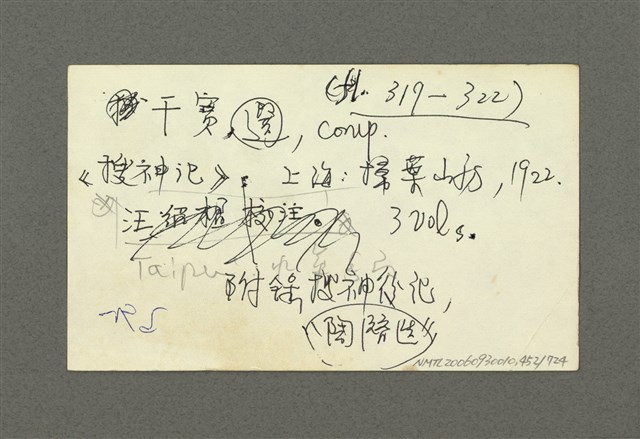 干寶選, comp. (fl. 319-322)
《搜神记》. 上海: 掃葉山房, 1922.
汪紹楹 校注. 3 vols.
Taipei
附錄搜神後记,
(陶潛选)
NMTL20060930010.452/724